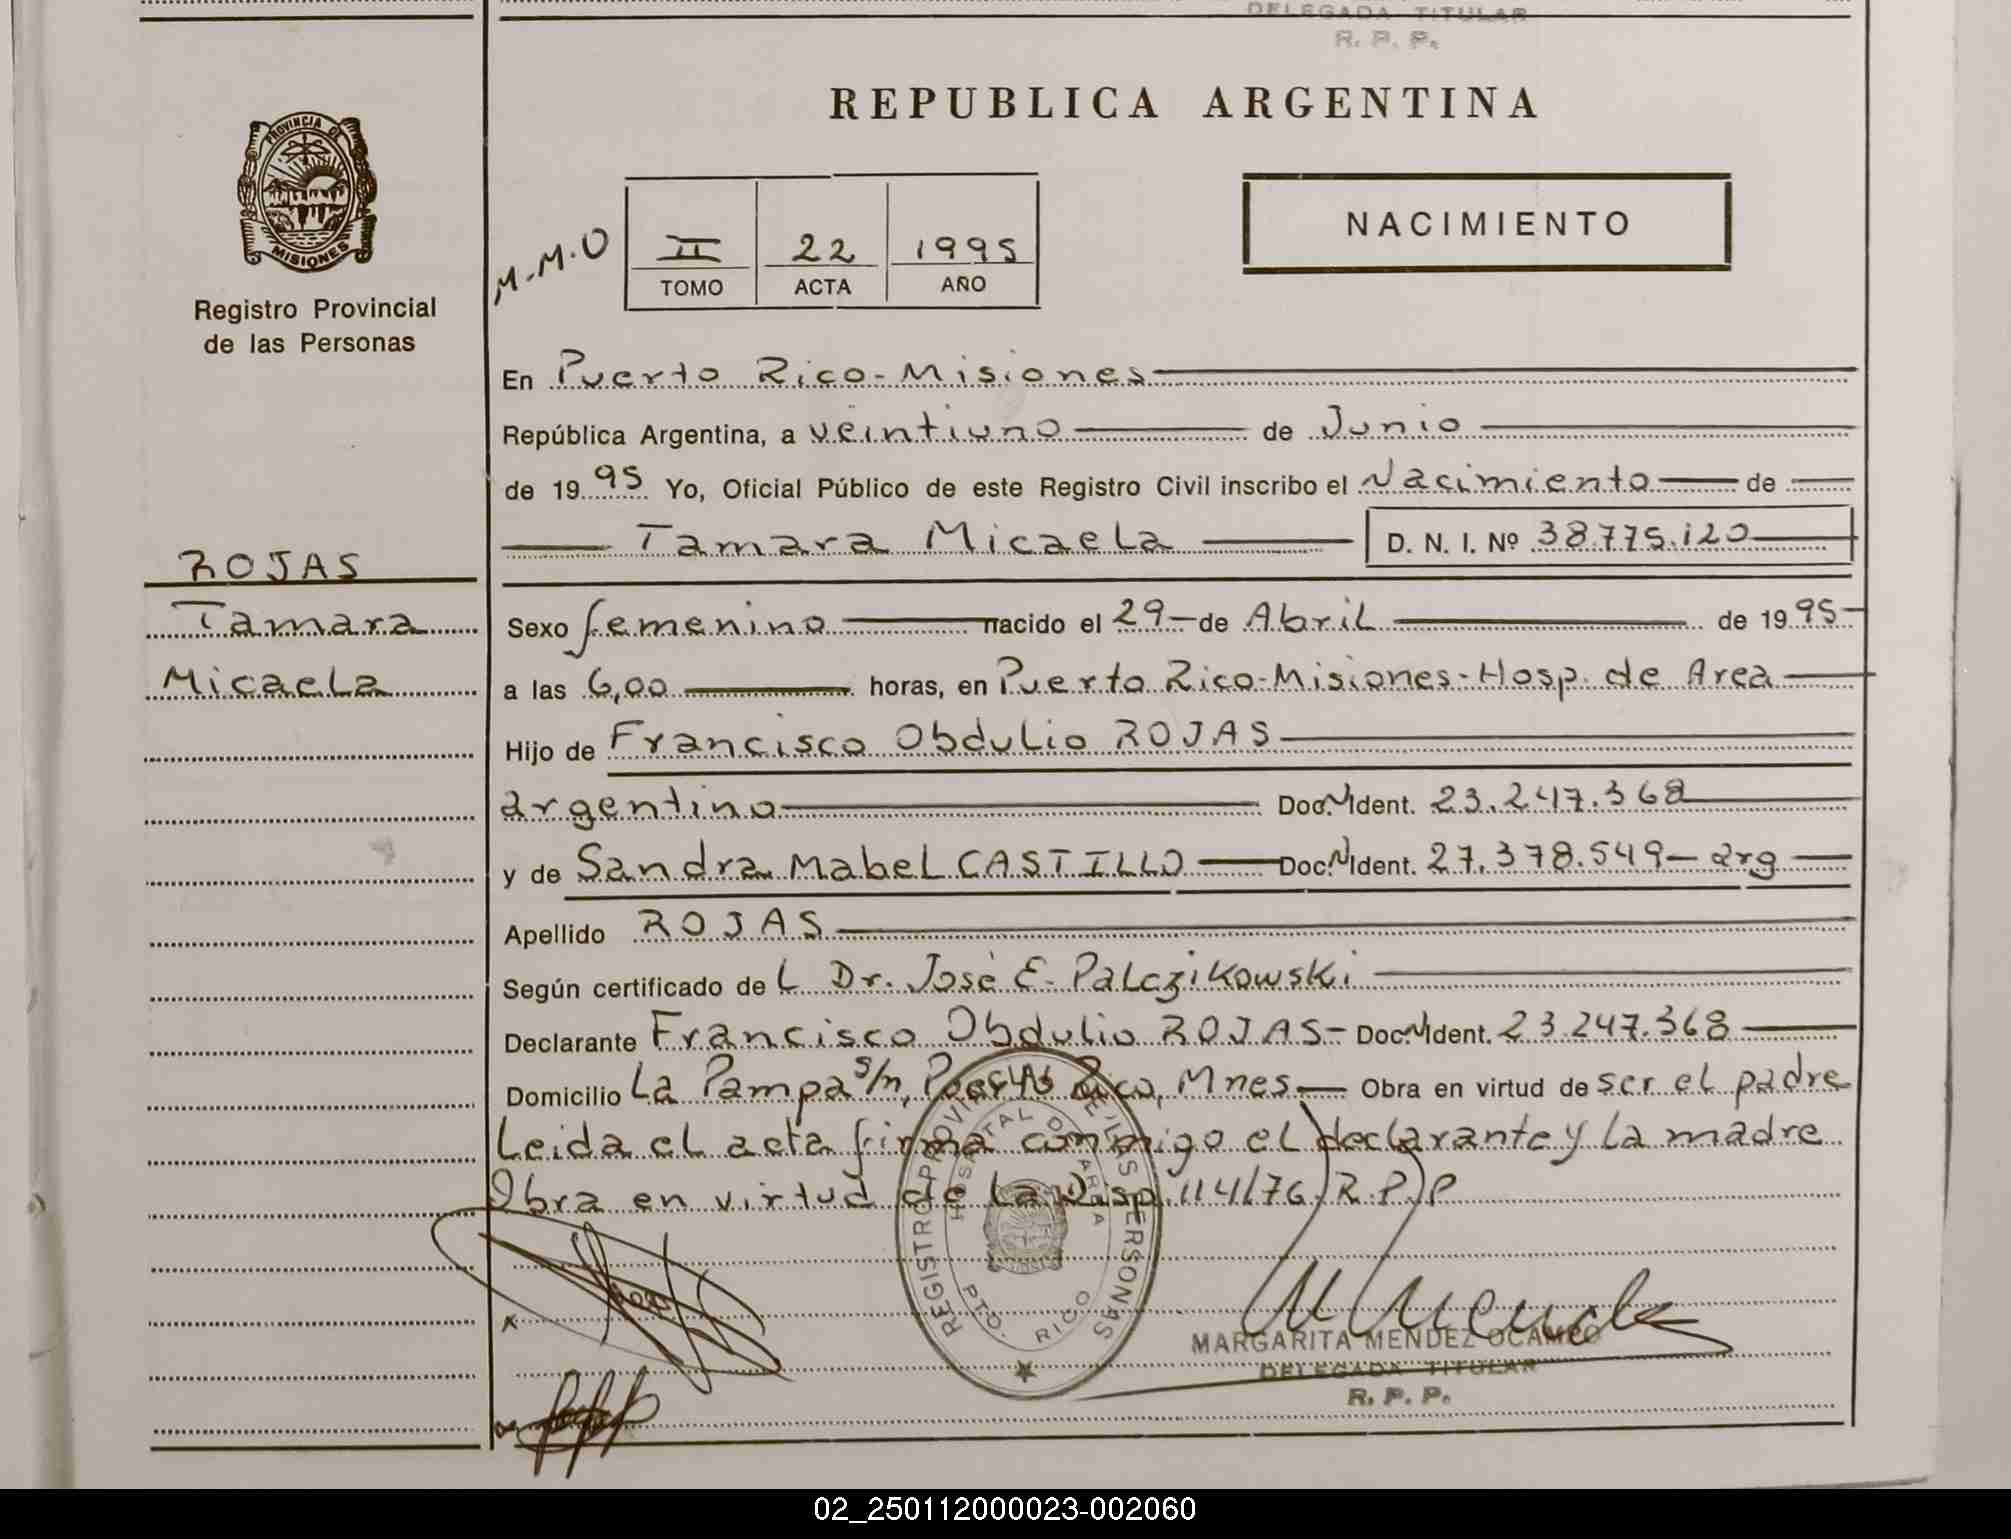 DELEGADA TITULAR
R. P. P.
REPUBLICA ARGENTINA
PROVINCIA DE
MISIONES
Registro Provincial
de las Personas
M.M.O
II 22 1995
TOMO ACTA AÑO
NACIMIENTO
En Puerto Rico-Misiones
República Argentina, a veintiuno de Junio
de 1995 Yo, Oficial Público de este Registro Civil inscribo el Nacimiento de
Tamara Micaela D. N. I. Nº 38.775.120
ROJAS
Tamara
Micaela
Sexo femenino nacido el 29 de Abril de 1995
a las 6,00 horas, en Puerto Rico-Misiones-Hosp. de Area
Hijo de Francisco Obdulio ROJAS
argentino Doc. N Ident. 23.247.368
y de Sandra Mabel CASTILLO Doc. N Ident. 27.378.549 - arg
Apellido ROJAS
Según certificado de L Dr. José E. Palczikowski
Declarante Francisco Obdulio ROJAS - Doc. N Ident. 23.247.368
Domicilio La Pampa s/n, Puerto Rico, Mnes Obra en virtud de ser el padre
Leida el acta firma conmigo el declarante y la madre
Obra en virtud de la Disp. 114/76 R.P.P
REGISTRO PROVINCIAL DE LAS PERSONAS
HOSPITAL DE AREA
PTO. RICO
MARGARITA MENDEZ OCAMPO
DELEGADA TITULAR
R. P. P.
02_250112000023-002060